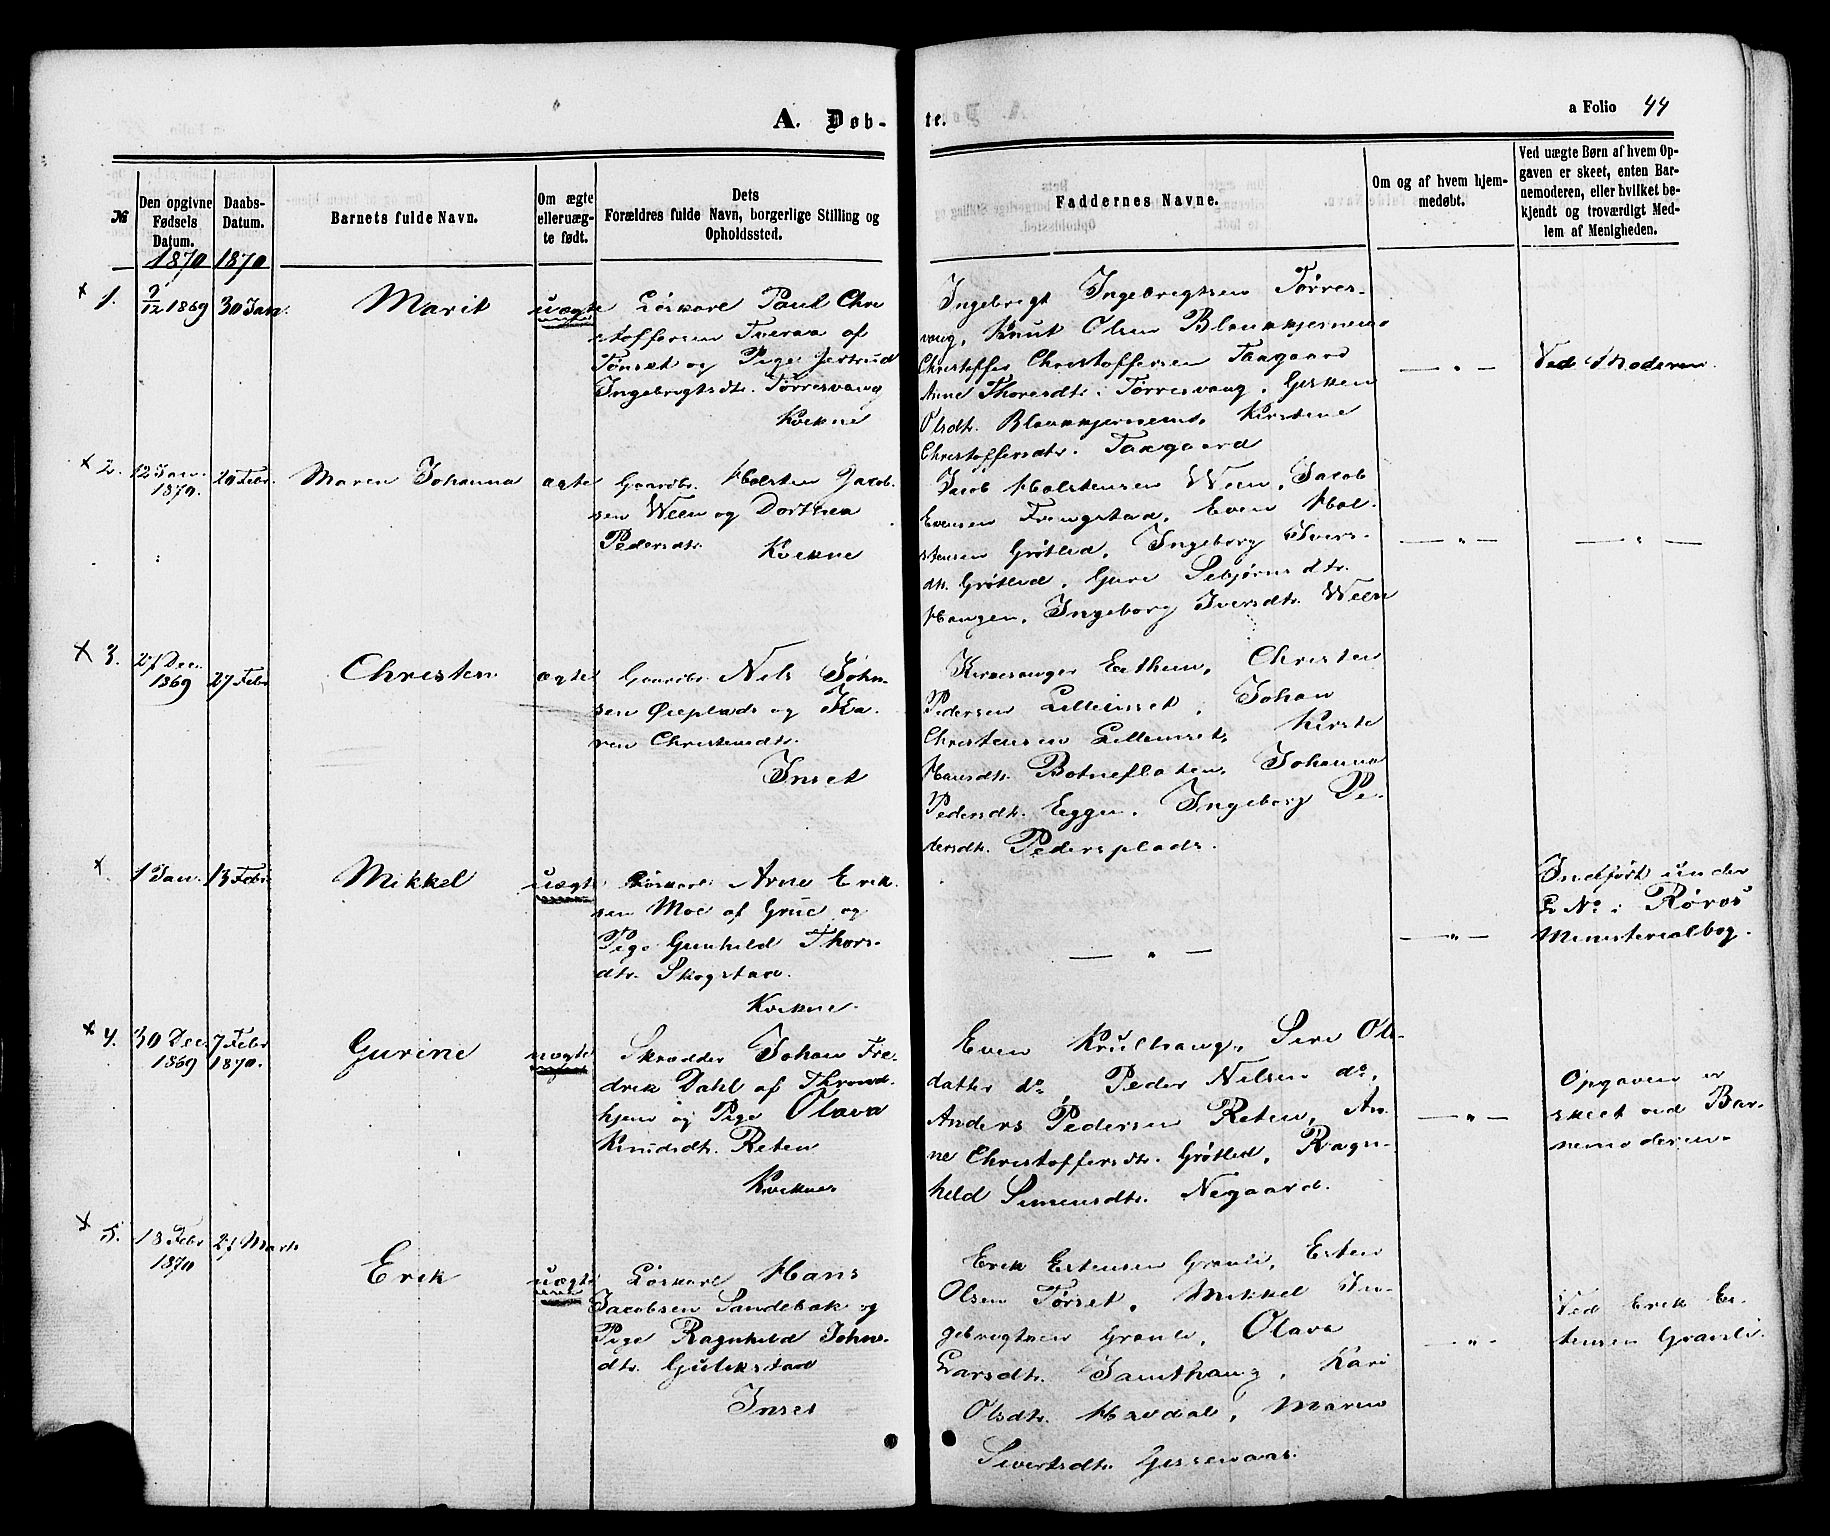 A. Døb-
te.
a Folio 44
№
Den opgivne Fødsels Datum.
1870
Daabs-Datum.
1870
Barnets fulde Navn.
Om ægte elleruæg-te født.
Dets
Forældres fulde Navn, borgerlige Stilling og Opholdssted.
Faddernes Navne.
Om og af hvem hjem-medøbt.
Ved uægte Børn af hvem Op-
gaven er skeet, enten Bar-
nemoderen, eller hvilket be-
kjendt og troværdigt Med-
lem af Menigheden.
× 1.
9/12 1869
30 Jan.
Marit
uægte
Løskarl Paul Chri
stoffersen Tveraa af
Tønset og Pige Jertrud
Ingebrigtsdtr. Tørresvang
Kvikne
Ingebrigt Ingebrigtsen Tørres-
vang, Knut Olsen
Christoffer Christoffersen Taagaard
Anne Thoresdtr. Tørresvang,
Olsdtr. Kirstine
Christoffersdtr. Taagaard
— " —
Ved Moderen.
× 2.
12 Jan.
1870.
20 Febr.
Maren Johanna
ægte
Gaardbr. Holsten Jacob-
sen Ween og Dorthea
Pedersdtr.
Kvikne
Jacob Holstensen Ween, Jacob
Evensen Frengstad, Even Hol-
stensen Grøtlid, Ingeborg Ivers-
dtr. Grøtlid, Guri Sebjørnsdtr.
Haugen, Ingeborg Iversdtr. Ween
— " —
— " —
× 3.
27 Dec.
1869
27 Febr
Christen
ægte
Gaardbr. Nils John-
sen Øieplads og Ka-
ren Christensdtr.
Inset
Kirkesanger Christen
Pedersen Lilleinset, Johan
Christensen Lilleinset, Kirsti
Hansdtr. Botnefloten, Johanna
Pedersdtr. Eggen, Ingeborg Pe-
dersdtr. Pedersplads.
×.
1 Jan.
13 Febr.
Mikkel
uægte
Løskarl Arne Erik-
sen Moe af Grue og
Pige Gunhild Thors-
dtr. Skogstad.
Kvikne.
— " —
— " —
Indført under
L No i Røros
Ministerialbog.
× 4.
30 Dec.
1869
7 Febr
1870.
Gurine
uægte
Skrædder Johan Fre-
drik Dahl af Thrond-
hjem og Pige Olava
Knudsdtr. Reten
Kvikne
Even Krulhaug, Siri Ols-
datter do, Peder Nilsen do,
Anders Pedersen Reten, An-
ne Christoffersdtr. Grøtlid, Ragn-
hild Simensdtr. Negaard.
— " —
Opgaven er
skeet ved Bar-
nemoderen.
× 5.
18 Febr
1870
27 Marts
Erik
uægte
Løskarl Hans
Jacobsen Sandebak og
Pige Ragnhild Johns-
dtr. Gulikstad
Inset
Erik Estensen Granli, Esten
Olsen Tørset, Mikkel In-
gebrigtsen Granli, Olava
Larsdtr. Jamthaug, Kari
Olsdtr. Havdal, Maren
Sivertsdtr.
— " —
Ved Erik Es-
tensen Granli.